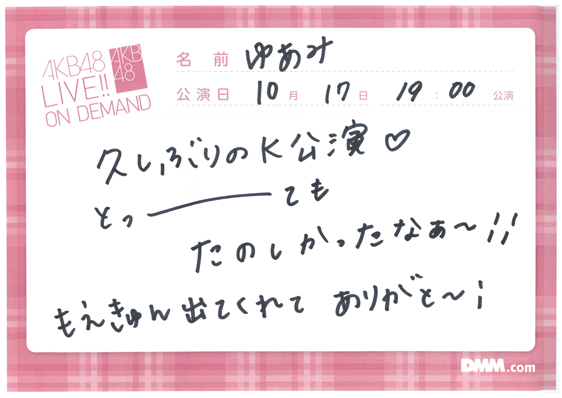 AKB48
LIVE!!
ON DEMAND
AKB
48
名前 ゆあみ
公演日 10月 17日 19:00 公演
久しぶりのK公演♡
とっーーても
たのしかったなぁ〜!!
もえきゅん出てくれて ありがと〜!
DMM.com